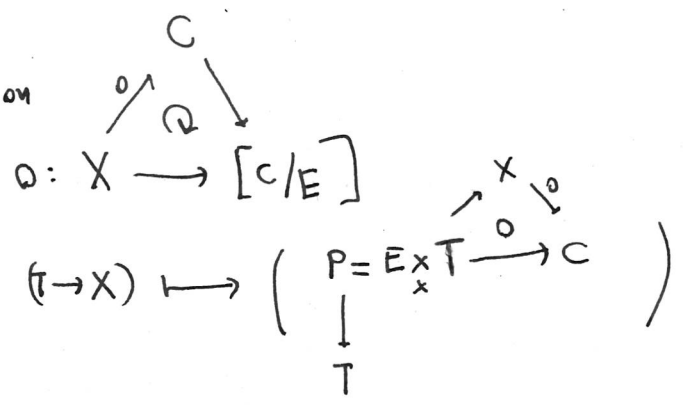 C
on
0
0: X → [C/E]
X
0
0
(T → X) ⟼ ( P = E ×_X T → C )
↓
T